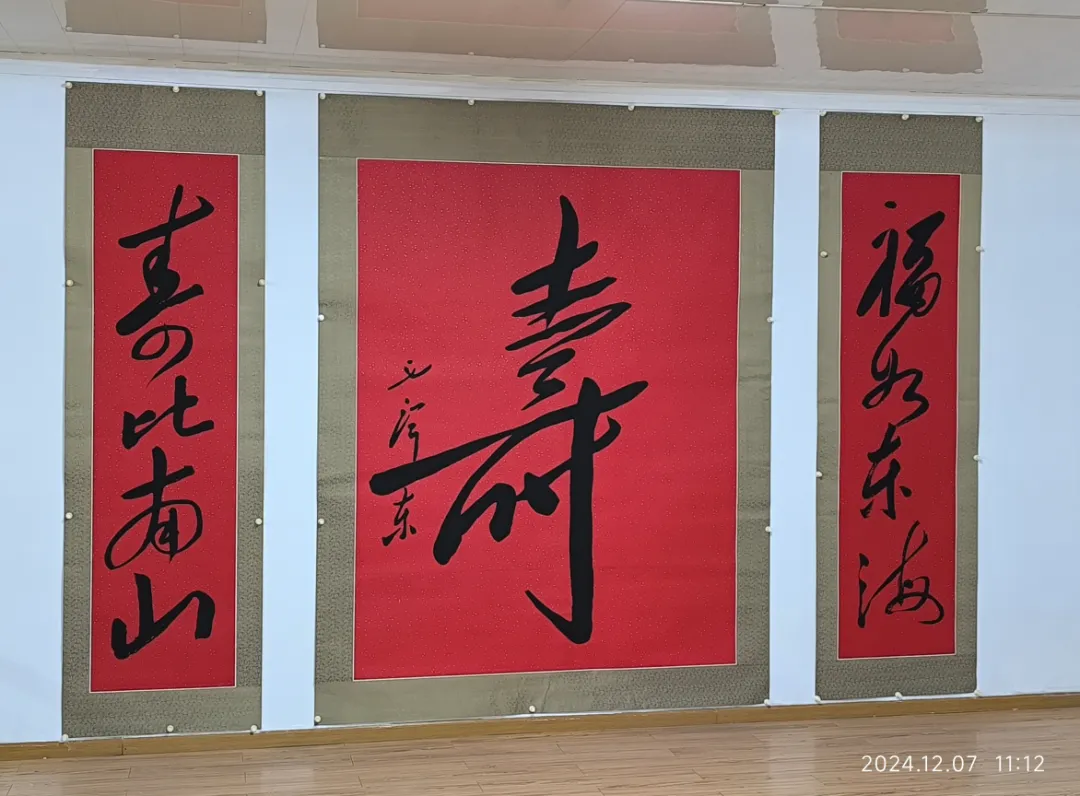 福如东海
壽
毛泽东
寿比南山
2024.12.07 11:12